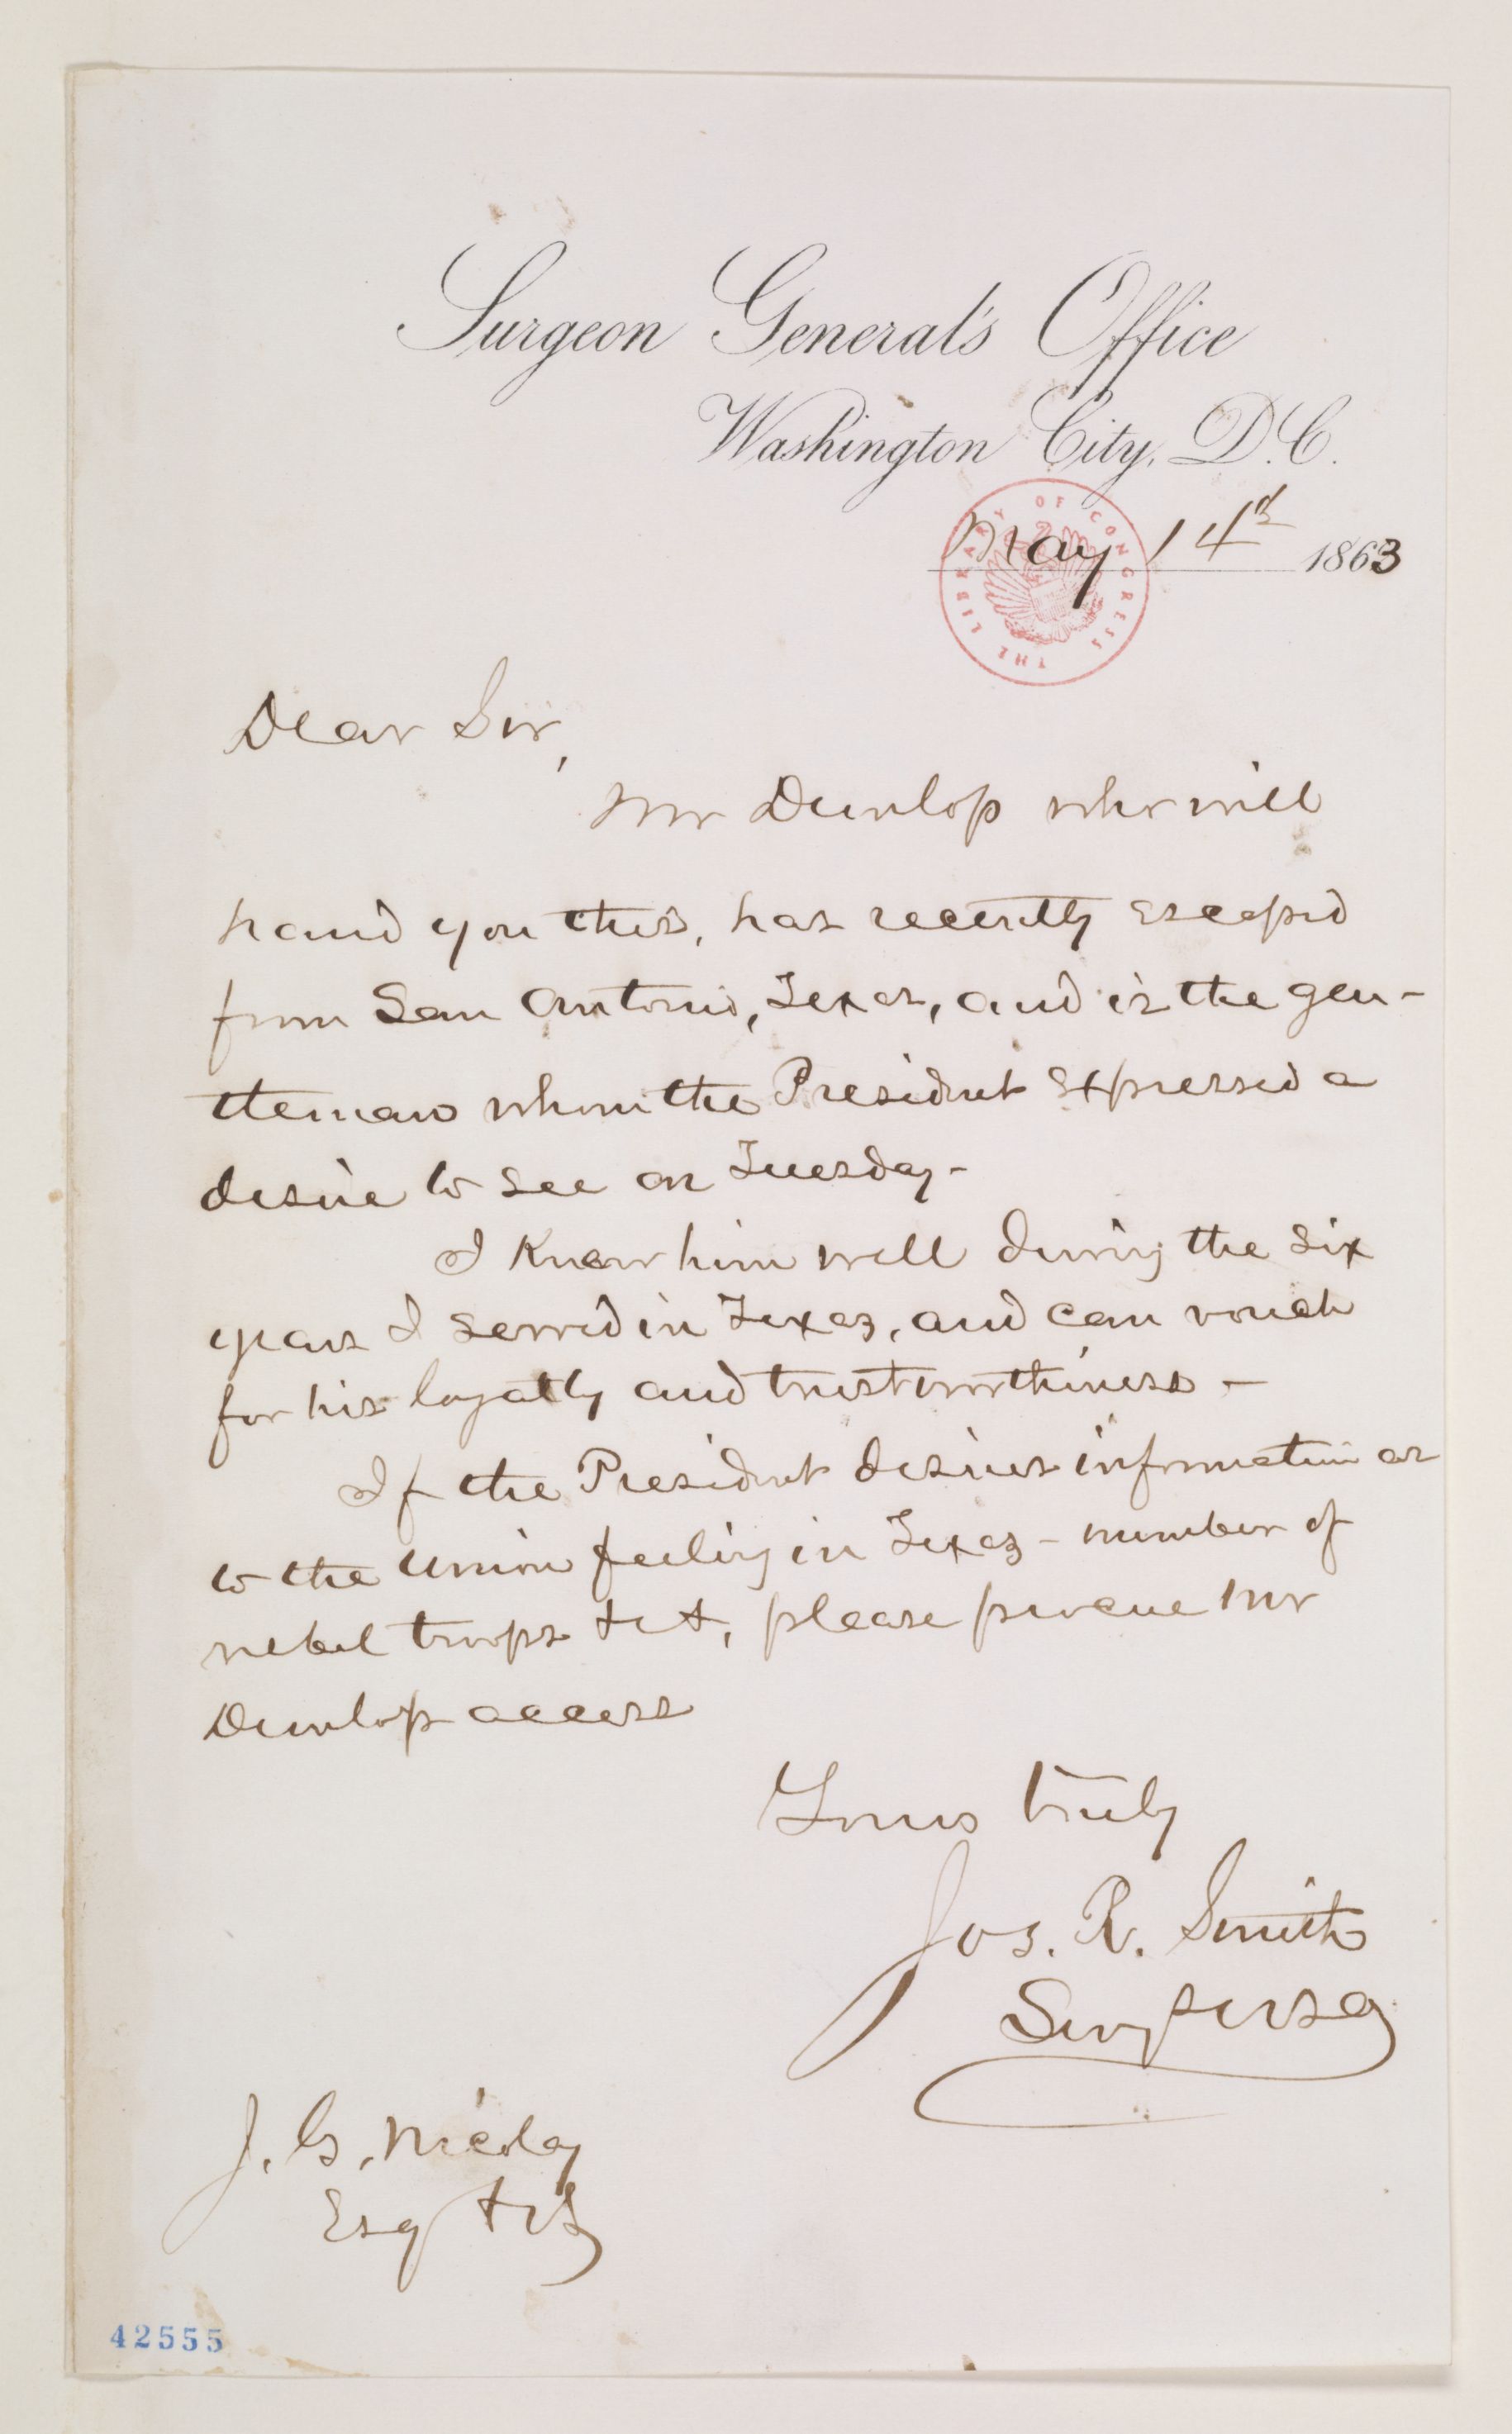 Surgeon General's Office
Washington City, D.C.
May 14th 1863
THE LIBRARY OF CONGRESS
Dear Sir,
Mr Dunlop who will
hand you this, has recently escaped
from San Antonio, Texas, and is the gen-
tleman whom the President expressed a
desire to see on Tuesday -
I knew him well during the six
years I served in Texas, and can vouch
for his loyalty and trustworthiness -
If the President desires information as
to the Union feeling in Texas - number of
rebel troops &c &, please procure Mr
Dunlop access
Yours truly
Jos. R. Smith
Surg USA
J. G. Nicolay
Esq &c
42555